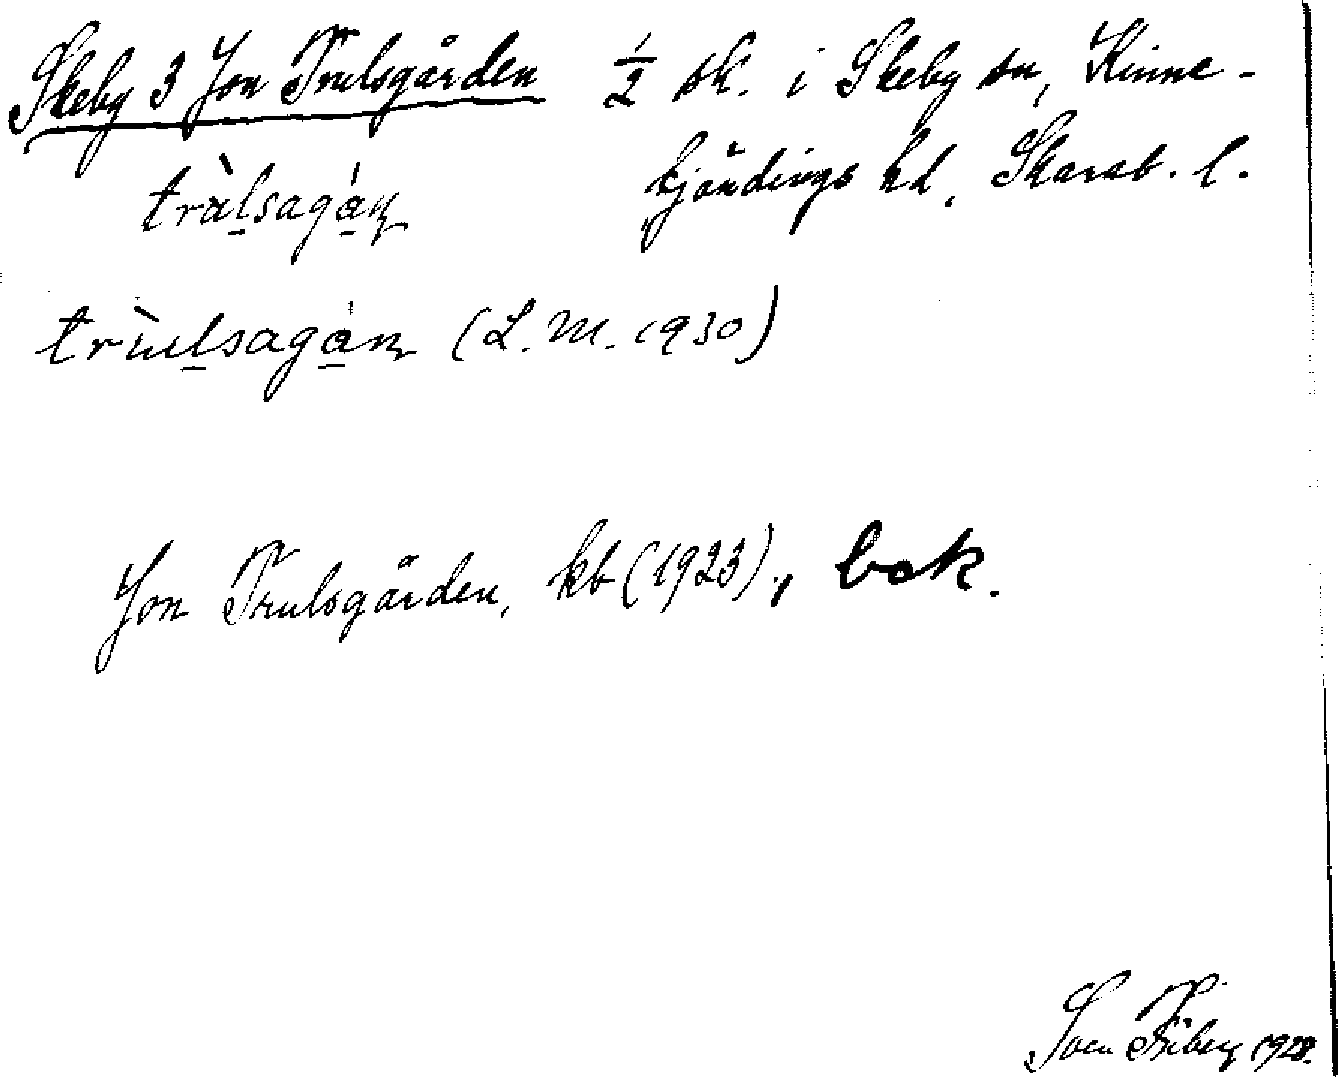 Skeby 3 Jon Trulsgården ½ sk. i Skeby sn, Kinne-
fjärdings hd, Skarab. l.
tràlsagán
trùlsagán (L.M. 1930)
Jon Trulsgården, kb (1923), bok.
Sven Friberg 1928.